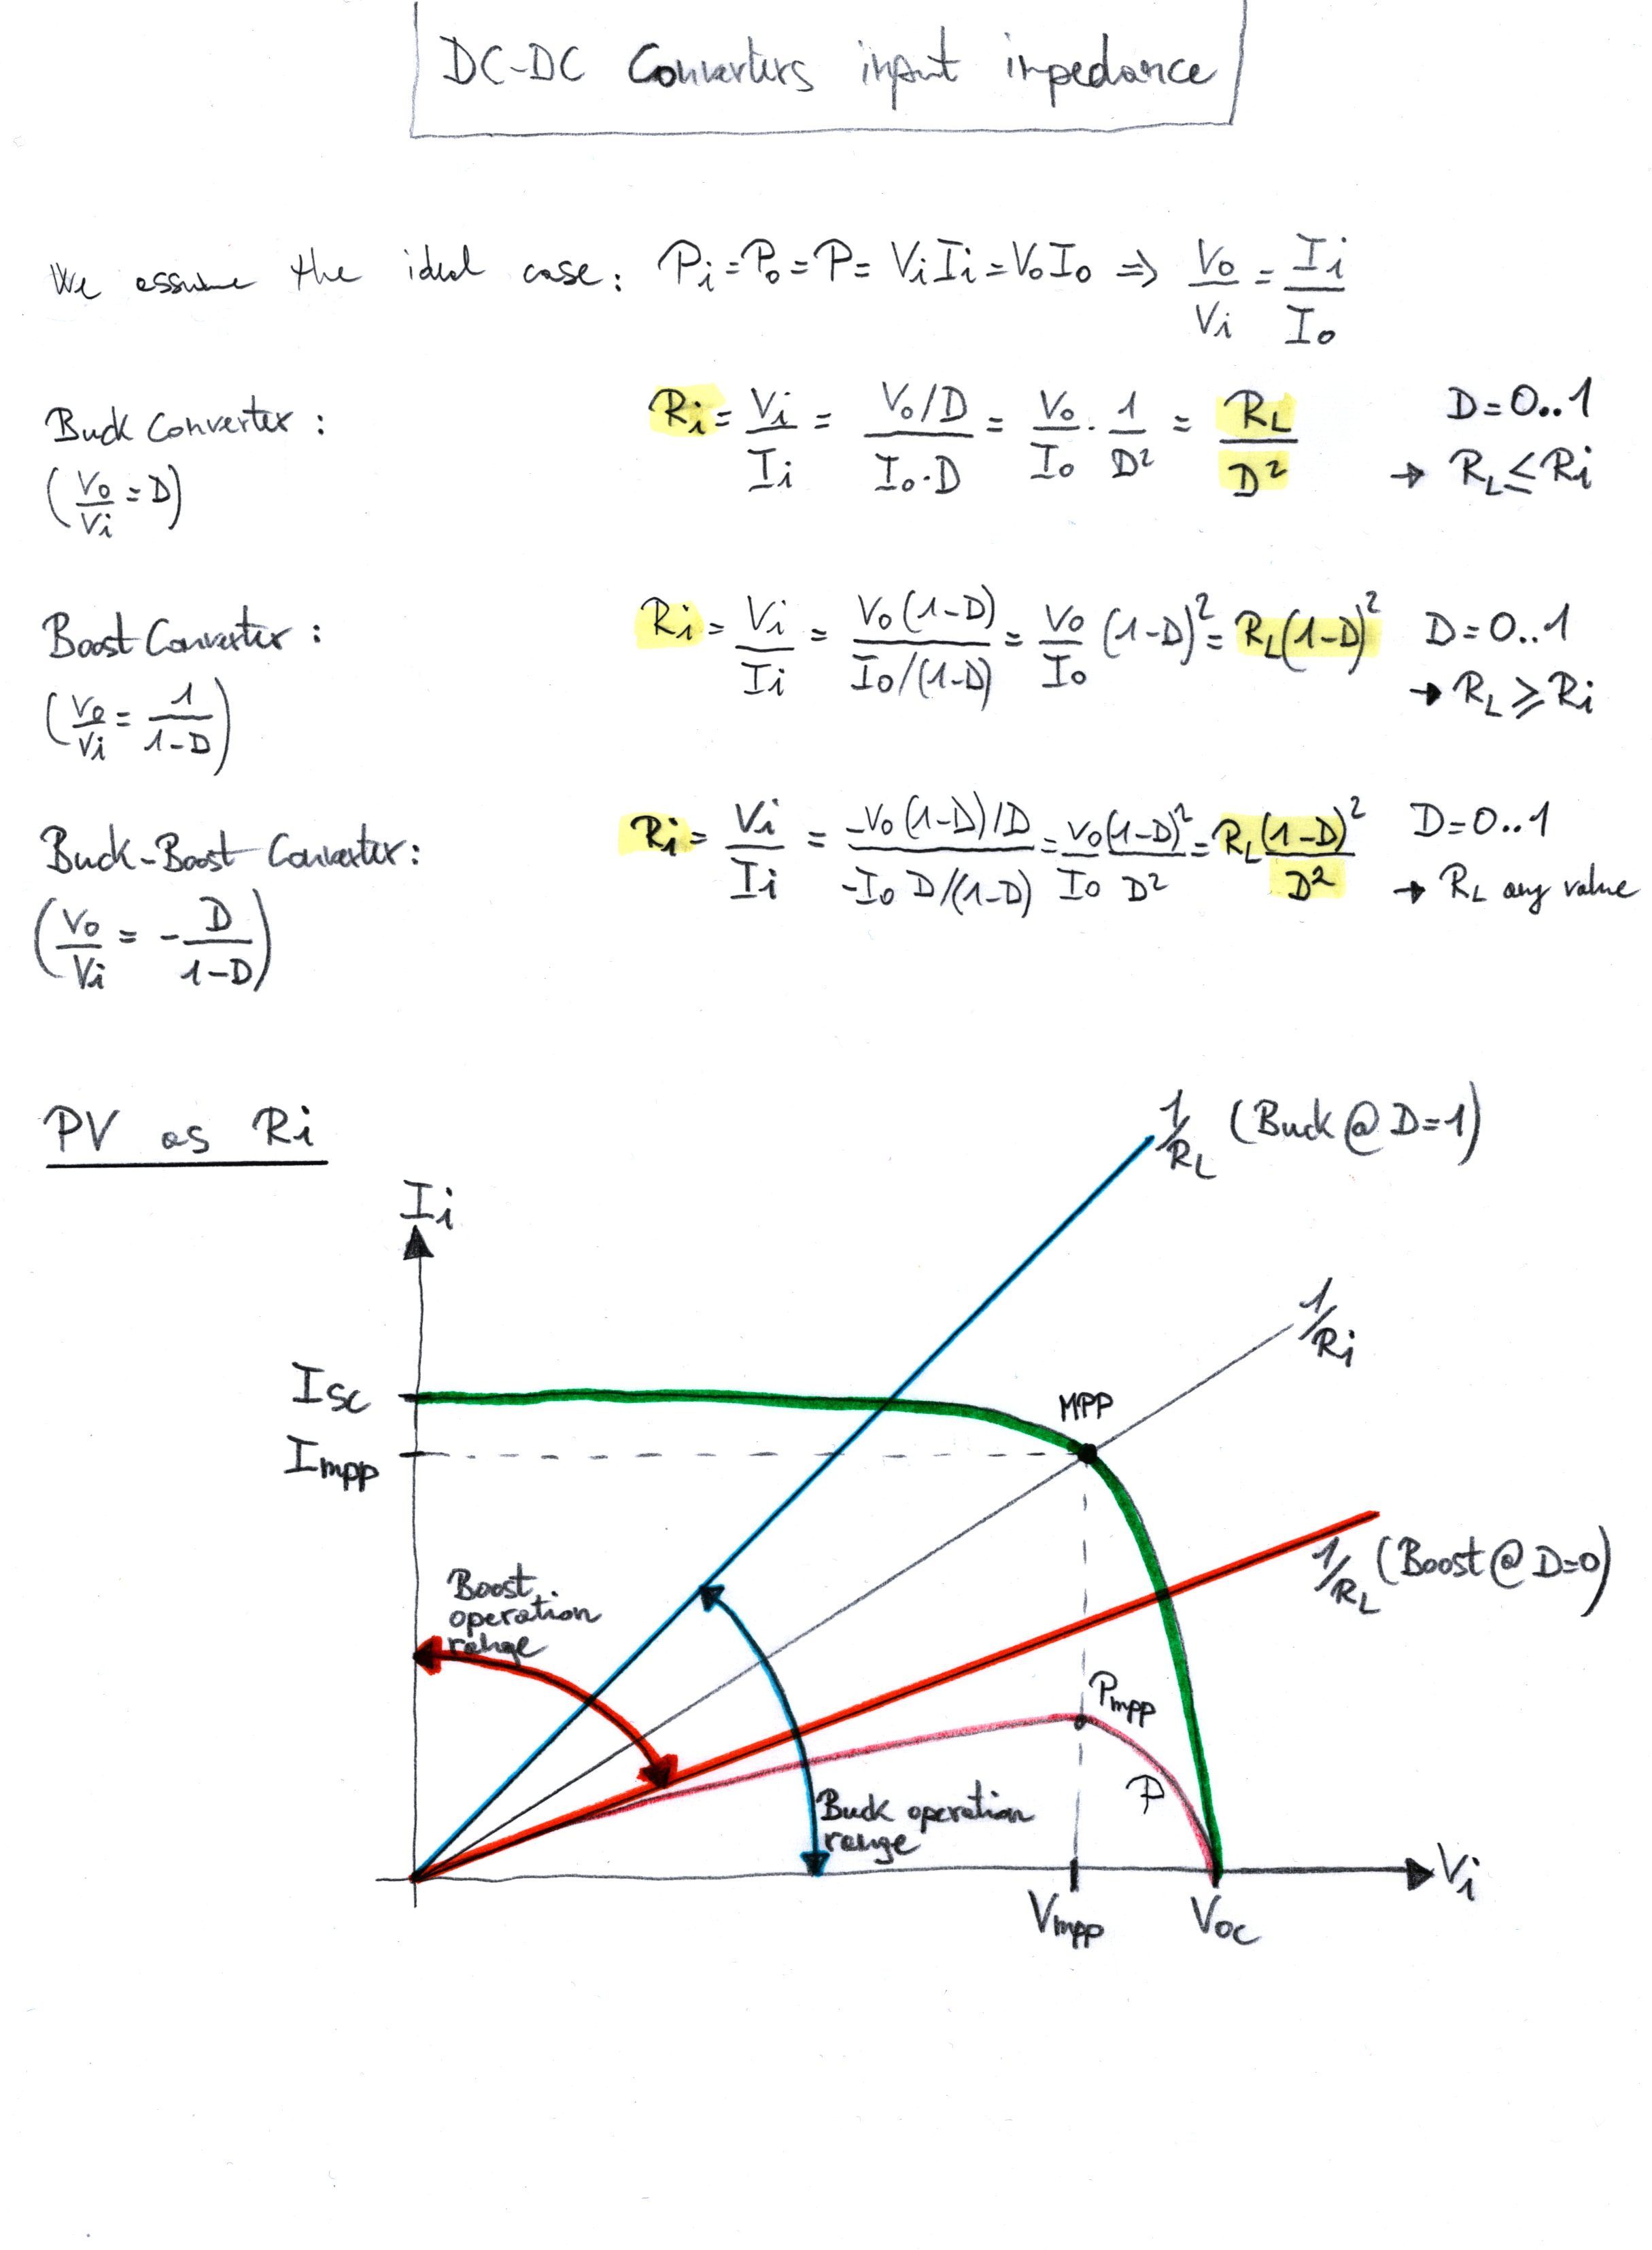 DC-DC Converters input impedance
We assume the ideal case: Pi = Po = P = ViIi = VoIo ⇒ Vo/Vi = Ii/Io
Buck Converter: Ri = Vi/Ii = (Vo/D)/(Io·D) = Vo/Io · 1/D² = RL/D² D=0..1
(Vo/Vi = D) → RL ≤ Ri
Boost Converter: Ri = Vi/Ii = Vo(1-D)/(Io/(1-D)) = Vo/Io (1-D)² = RL(1-D)² D=0..1
(Vo/Vi = 1/(1-D)) → RL ≥ Ri
Buck-Boost Converter: Ri = Vi/Ii = (-Vo(1-D)/D)/(-Io D/(1-D)) = Vo/Io (1-D)²/D² = RL(1-D)²/D² D=0..1
(Vo/Vi = -D/(1-D)) → RL any value
PV as Ri
1/RL (Buck @ D=1)
Ii
1/Ri
Isc
MPP
Impp
1/RL (Boost @ D=0)
Boost
operation
range
Pmpp
P
Buck operation
range
Vi
Vmpp
Voc